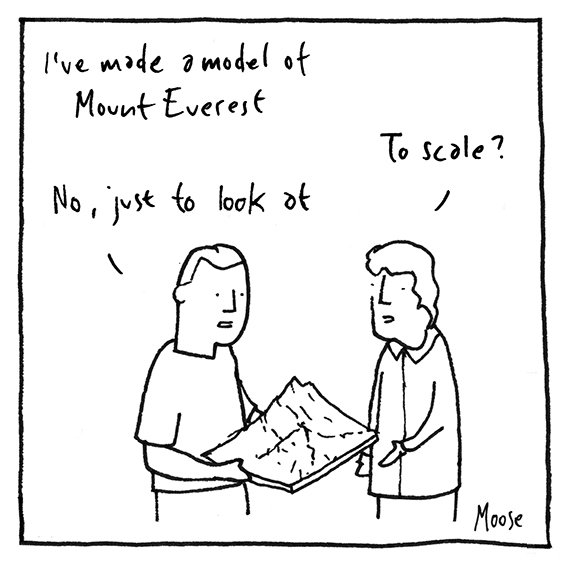 I've made a model of
Mount Everest
To scale?
No, just to look at
Moose